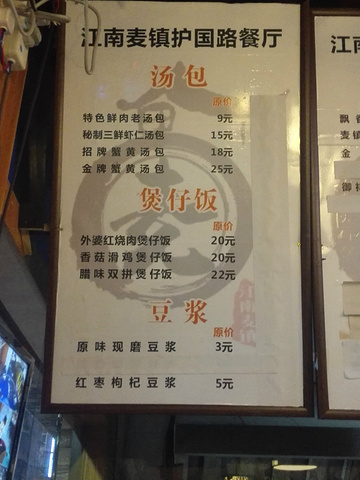 江南麦镇护国路餐厅
汤包
原价
特色鲜肉老汤包 9元
秘制三鲜虾仁汤包 15元
招牌蟹黄汤包 18元
金牌蟹黄汤包 25元
煲仔饭
原价
外婆红烧肉煲仔饭 20元
香菇滑鸡煲仔饭 20元
腊味双拼煲仔饭 22元
豆浆
原价
原味现磨豆浆 3元
红枣枸杞豆浆 5元
江南
飘香
麦镇
金
御